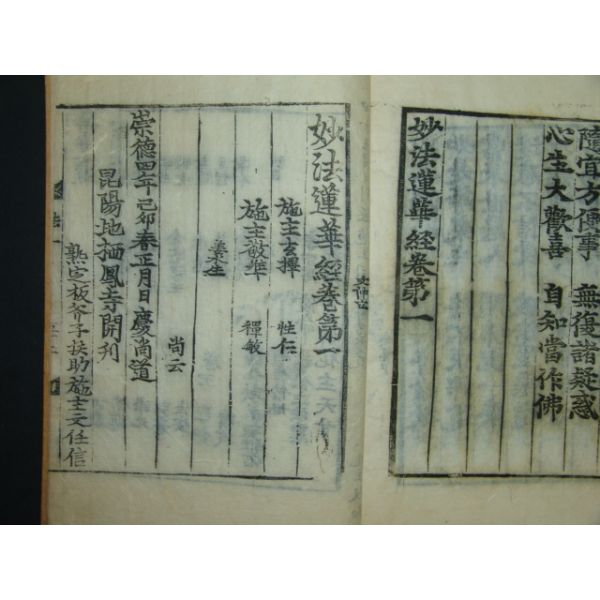 隨宜方便事　無復諸疑惑
心生大歡喜　自知當作佛
妙法蓮華經卷第一
妙法蓮華經卷第一
施主玄揮　性仁
施主敬准　禪敏
姜太生
尚云
崇德四年己卯春正月日慶尚道
昆陽地栖鳳寺開刋
熟宝板斧子扶助施主文任信